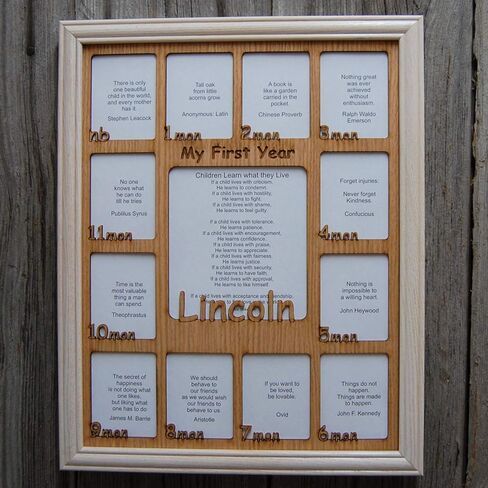 There is only
one beautiful
child in the world,
and every mother
has it.
Stephen Leacock
nb
Tall oak
from little
acorns grow.
Anonymous: Latin
1mon
A book is
like a garden
carried in the
pocket.
Chinese Proverb
2mon
Nothing great
was ever
achieved
without
enthusiasm.
Ralph Waldo
Emerson
3mon
My First Year
No one
knows what
he can do
till he tries
Publilius Syrus
11mon
Children Learn what they Live
If a child lives with criticism,
He learns to condemn.
If a child lives with hostility,
He learns to fight.
If a child lives with shame,
He learns to feel guilty.
If a child lives with tolerance,
He learns patience.
If a child lives with encouragement,
He learns confidence.
If a child lives with praise,
He learns to appreciate.
If a child lives with fairness,
He learns justice
If a child lives with security,
He learns to have faith,
If a child lives with approval,
He learns to like himself
If a child lives with acceptance and friendship,
Lincoln
Forget injuries.
Never forget
Kindness.
Confucious
4mon
Time is the
most valuable
thing a man
can spend.
Theophrastus
10mon
Nothing is
impossible to
a willing heart.
John Heywood
5mon
The secret of
happiness
is not doing what
one likes,
but liking what
one has to do
James M. Barrie
9mon
We should
behave to
our friends
as we would
wish our friends
to behave to us
Aristotle
8mon
If you want to
be loved,
be lovable.
Ovid
7mon
Things do not
happen.
Things are made
to happen.
John F. Kennedy
6mon